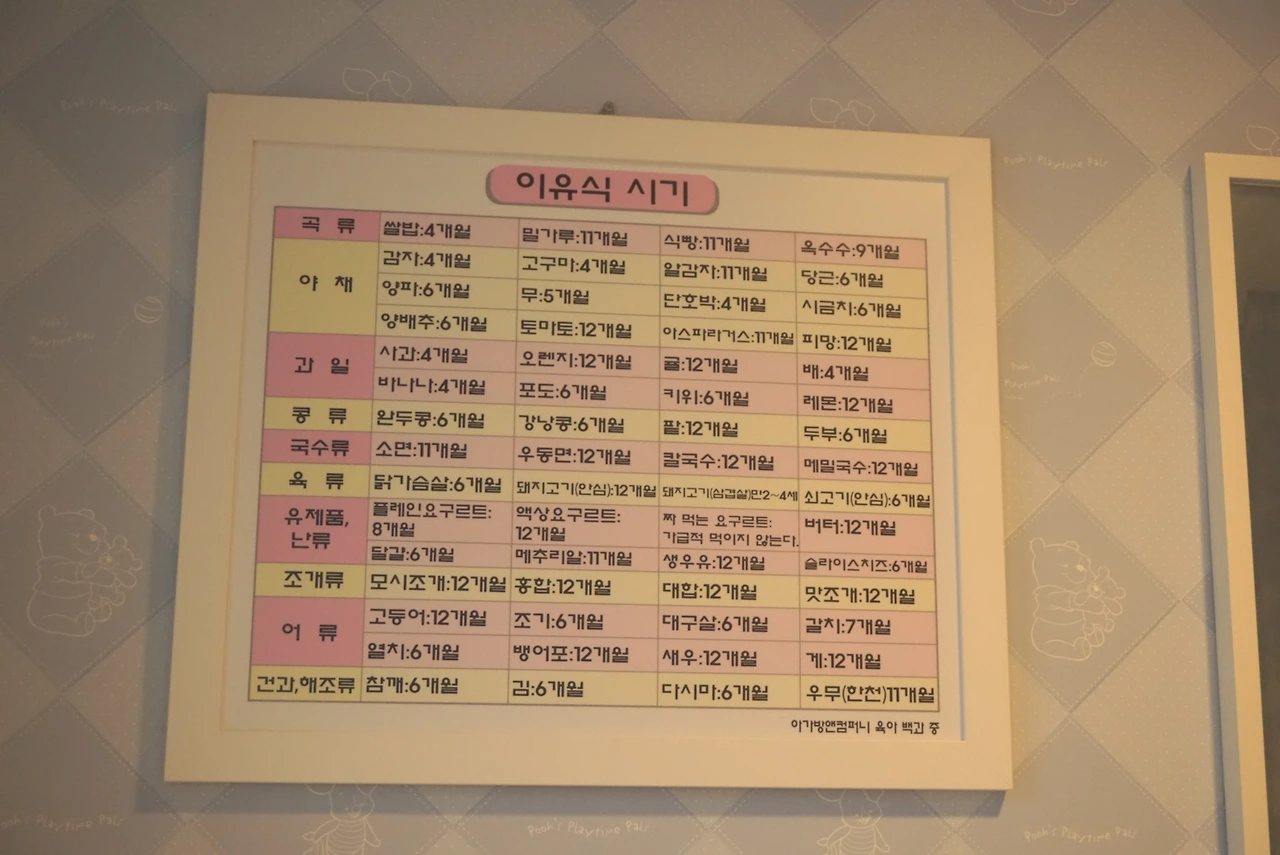 이유식 시기
곡 류 쌀밥:4개월 밀가루:11개월 식빵:11개월 옥수수:9개월
야 채 감자:4개월 고구마:4개월 알감자:11개월 당근:6개월
양파:6개월 무:5개월 단호박:4개월 시금치:6개월
양배추:6개월 토마토:12개월 아스파라거스:11개월 피망:12개월
과 일 사과:4개월 오렌지:12개월 귤:12개월 배:4개월
바나나:4개월 포도:6개월 키위:6개월 레몬:12개월
콩 류 완두콩:6개월 강낭콩:6개월 팥:12개월 두부:6개월
국수류 소면:11개월 우동면:12개월 칼국수:12개월 메밀국수:12개월
육 류 닭가슴살:6개월 돼지고기(안심):12개월 돼지고기(삼겹살)만2~4세 쇠고기(안심):6개월
유제품, 난류 플레인요구르트: 8개월 액상요구르트: 12개월 짜 먹는 요구르트: 가급적 먹이지 않는다. 버터:12개월
달걀:6개월 메추리알:11개월 생우유:12개월 슬라이스치즈:6개월
조개류 모시조개:12개월 홍합:12개월 대합:12개월 맛조개:12개월
어 류 고등어:12개월 조기:6개월 대구살:6개월 갈치:7개월
멸치:6개월 뱅어포:12개월 새우:12개월 게:12개월
건과,해조류 참깨:6개월 김:6개월 다시마:6개월 우무(한천)11개월
아가방앤컴퍼니 육아 백과 중
Pooh's Playtime Pals
Pooh's Playtime Pals
Pooh's Playtime Pals
Pooh's Playtime Pals
Pooh's Playtime Pals